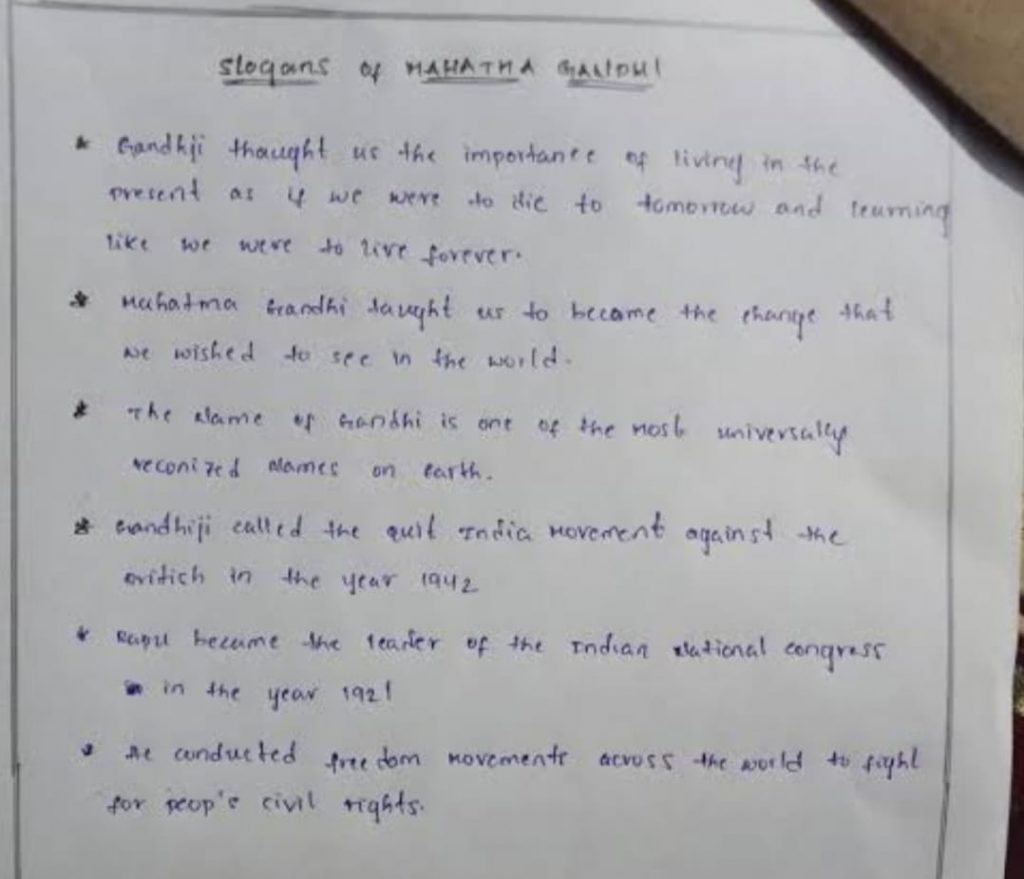 slogans of MAHATMA GANDHI
* Gandhji thaught us the importance of living in the
present as if we were to die to tomorrow and learning
like we were to live forever.
* Mahatma Gandhi taught us to became the change that
we wished to see in the world.
* The Name of Gandhi is one of the most universally
reconized Names on earth.
* Gandhiji called the quit India Movement against the
british in the year 1942
* Bapu became the leader of the Indian National congress
in the year 1921
* He conducted freedom movements across the world to fight
for peop's civil rights.